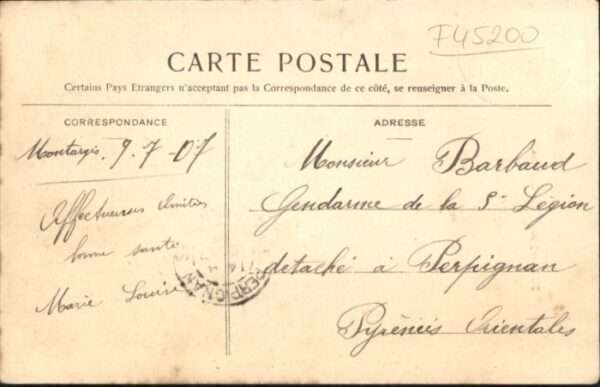 F45200
CARTE POSTALE
Certains Pays Etrangers n'acceptant pas la Correspondance de ce côté, se renseigner à la Poste.
CORRESPONDANCE
Montargis 9-7-07
Affectueuses Amitiés
bonne santé
Marie Louise
PERPIGNAN
ADRESSE
Monsieur Barbaud
Gendarme de la 5e Légion
detaché à Perpignan
Pyrénéés Orientales